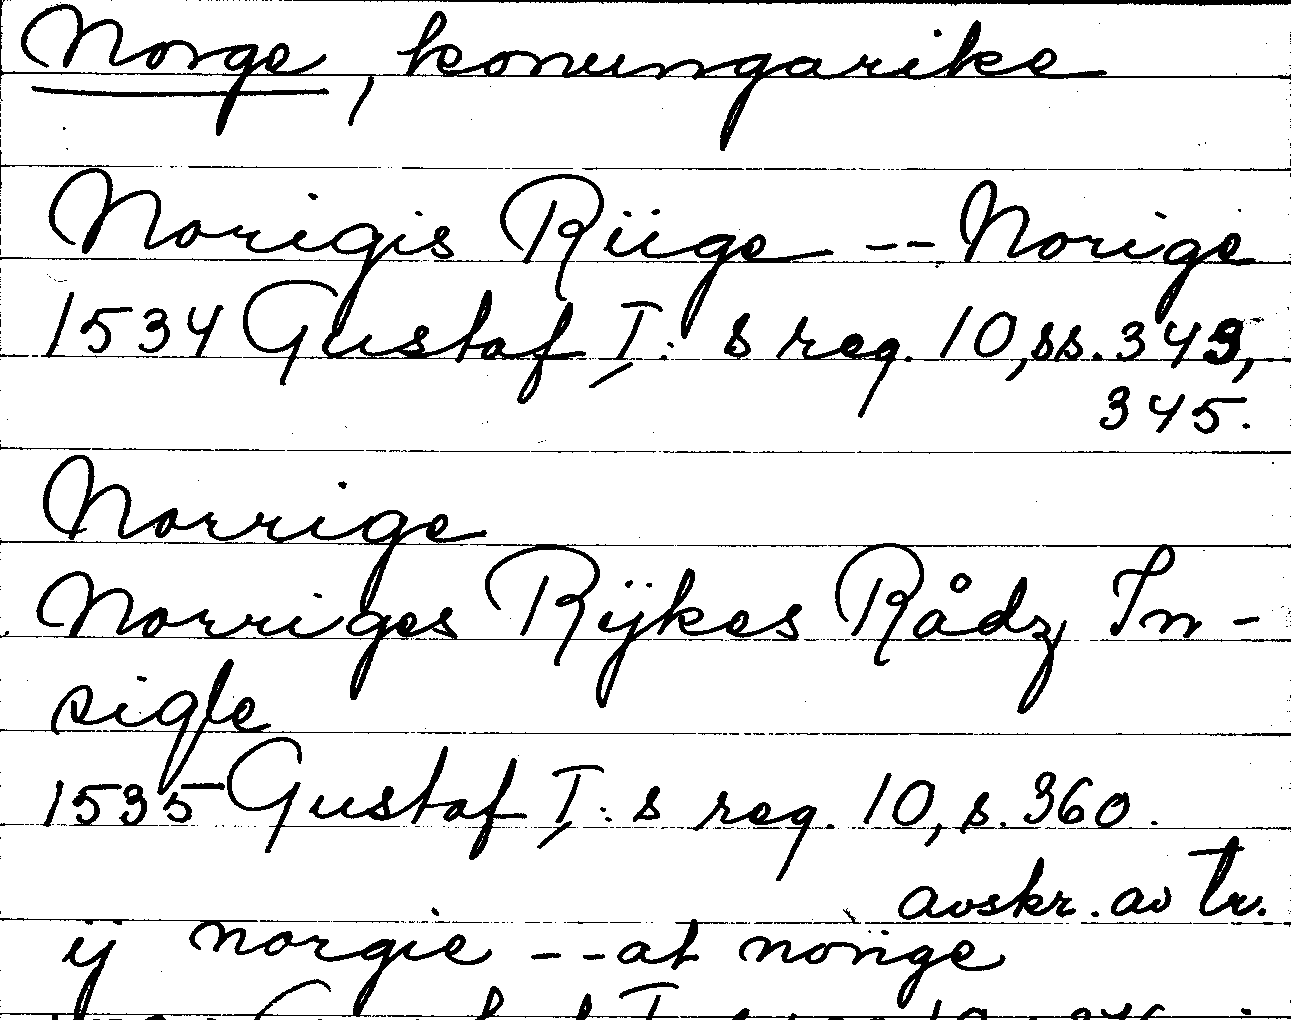 Norge, konungarike
Norigis Riige -- Norige
1534 Gustaf I:s reg. 10, ss. 343,
345.
Norrige
Norriges Rÿkes Rådz In-
sigle
1535 Gustaf I:s reg. 10, s. 360.
avskr. av Tr.
ij norgie -- at norige